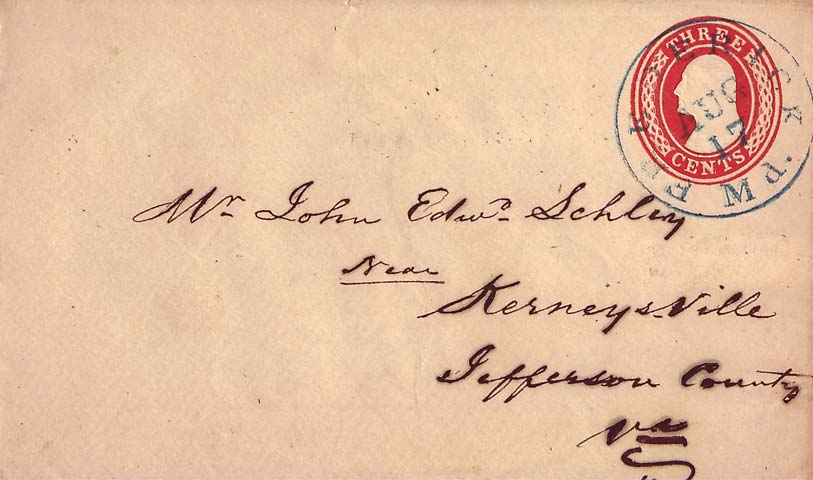 THREE
CENTS
FREDERICK Md.
AUG
17
Mr John Edwd. Schley
Near
Kerneysville
Jefferson County
Va